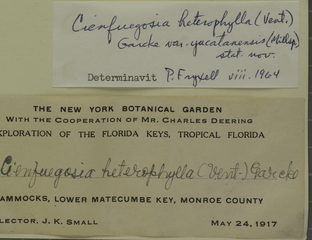 Cienfuegosia heterophylla (Vent.)
Garcke var. yucatanensis (Millsp.)
stat. nov.
Determinavit P. Fryxell viii. 1964
THE NEW YORK BOTANICAL GARDEN
WITH THE COOPERATION OF MR. CHARLES DEERING
XPLORATION OF THE FLORIDA KEYS, TROPICAL FLORIDA
Cienfuegosia heterophylla (Vent.) Garcke
AMMOCKS, LOWER MATECUMBE KEY, MONROE COUNTY
LLECTOR, J. K. SMALL MAY 24, 1917